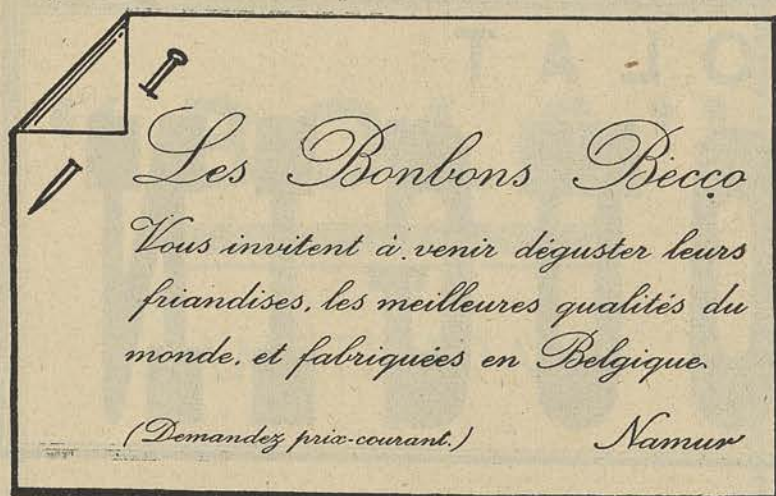 Les Bonbons Bécço
Vous invitent à venir déguster leurs
friandises, les meilleures qualités du
monde, et fabriquées en Belgique.
(Demandez prix-courant.)
Namur